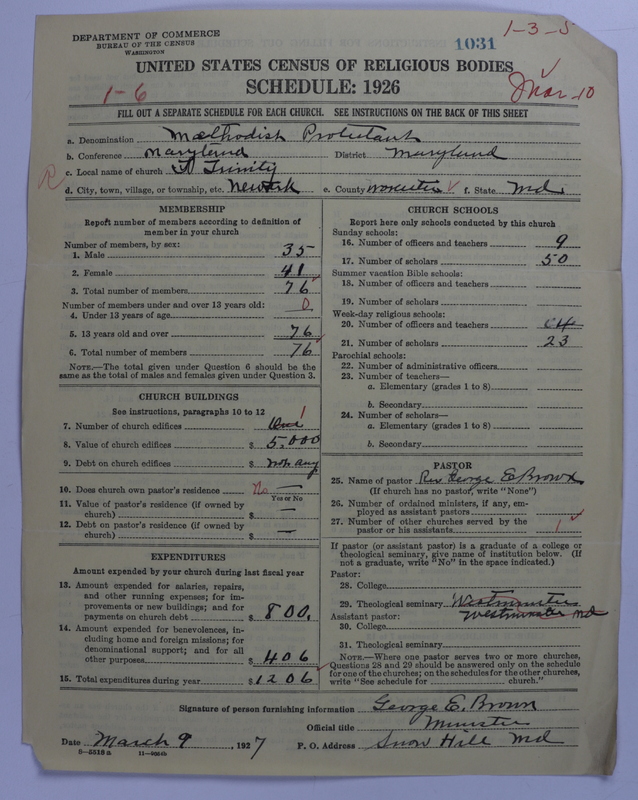 DEPARTMENT OF COMMERCE
BUREAU OF THE CENSUS
WASHINGTON
1-3-5
1031
UNITED STATES CENSUS OF RELIGIOUS BODIES
SCHEDULE: 1926
1-6
Mar 10
FILL OUT A SEPARATE SCHEDULE FOR EACH CHURCH. SEE INSTRUCTIONS ON THE BACK OF THIS SHEET
a. Denomination Methodist Protestant
b. Conference Maryland District Maryland
R c. Local name of church Trinity
d. City, town, village, or township, etc. Newark e. County Worcester f. State Md.
MEMBERSHIP
Report number of members according to definition of
member in your church
Number of members, by sex:
1. Male 35
2. Female 41
3. Total number of members 76
Number of members under and over 13 years old:
4. Under 13 years of age 0
5. 13 years old and over 76
6. Total number of members 76
NOTE.—The total given under Question 6 should be
same as the total of males and females given under Question 3.
CHURCH BUILDINGS
See instructions, paragraphs 10 to 12
7. Number of church edifices One 1
8. Value of church edifices $ 5,000
9. Debt on church edifices $ not any
10. Does church own pastor's residence No —
Yes or No
11. Value of pastor's residence (if owned by
church) $ —
12. Debt on pastor's residence (if owned by
church) $ —
EXPENDITURES
Amount expended by your church during last fiscal year
13. Amount expended for salaries, repairs,
and other running expenses; for im-
provements or new buildings; and for
payments on church debt $ 800.
14. Amount expended for benevolences, in-
cluding home and foreign missions; for
denominational support; and for all
other purposes $ 406
15. Total expenditures during year $ 1206
CHURCH SCHOOLS
Report here only schools conducted by this church
Sunday schools:
16. Number of officers and teachers 9
17. Number of scholars 50
Summer vacation Bible schools:
18. Number of officers and teachers
19. Number of scholars
Week-day religious schools:
20. Number of officers and teachers 4
21. Number of scholars 23
Parochial schools:
22. Number of administrative officers
23. Number of teachers—
a. Elementary (grades 1 to 8)
b. Secondary
24. Number of scholars—
a. Elementary (grades 1 to 8)
b. Secondary
PASTOR
25. Name of pastor Rev George E Brown
(If church has no pastor, write "None")
26. Number of ordained ministers, if any, em-
ployed as assistant pastors
27. Number of other churches served by the
pastor or his assistants 1
If pastor (or assistant pastor) is a graduate of a college or
theological seminary, give name of institution below. (If
not a graduate, write "No" in the space indicated.)
Pastor:
28. College
29. Theological seminary Westminster
Assistant pastor: Westminster Md
30. College
31. Theological seminary
NOTE.—Where one pastor serves two or more churches,
Questions 28 and 29 should be answered only on the schedule
for one of the churches; on the schedules for the other churches,
write "See schedule for church."
Signature of person furnishing information George E. Brown
Official title Minister
Date March 9, 1927 P. O. Address Snow Hill Md
8-5518a 11-9054b